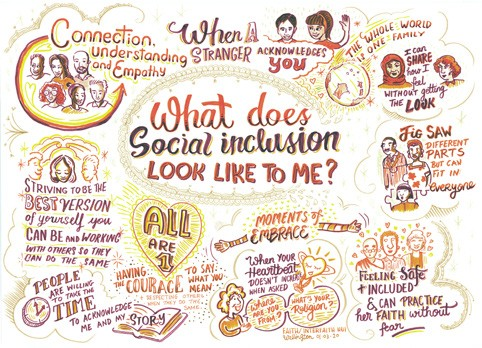 Connection,
Understanding
and Empathy
When A
STRANGER
ACKNOWLEDGES
YOU
THE WHOLE WORLD
IS ONE FAMILY
I can
SHARE
how I
feel
WITHOUT getting
THE LOOK
What does
Social inclusion
LOOK LIKE TO ME?
JIG SAW
DIFFERENT
PARTS
BUT CAN
FIT IN
Everyone
STRIVING TO BE THE
BEST VERSION
of yourself you
CAN BE AND WORKING
WITH OTHERS SO THEY
CAN DO THE SAME
ALL
ARE
1
HAVING
THE COURAGE
TO SAY
WHAT YOU
MEAN
& RESPECTING OTHERS
WHEN THEY DO THE
SAME
MOMENTS OF
EMBRACE
When Your
Heartbeat
DOESN'T INCREASE
WHEN ASKED
Where
ARE YOU
FROM?
WHAT'S YOUR
Religion?
FEELING Safe
+ INCLUDED
& CAN PRACTICE
her FAITH without
fear
PEOPLE
ARE WILLING
TO TAKE THE
TIME
TO ACKNOWLEDGE
ME AND MY STORY
FAITH/INTERFAITH HUI
Wellington